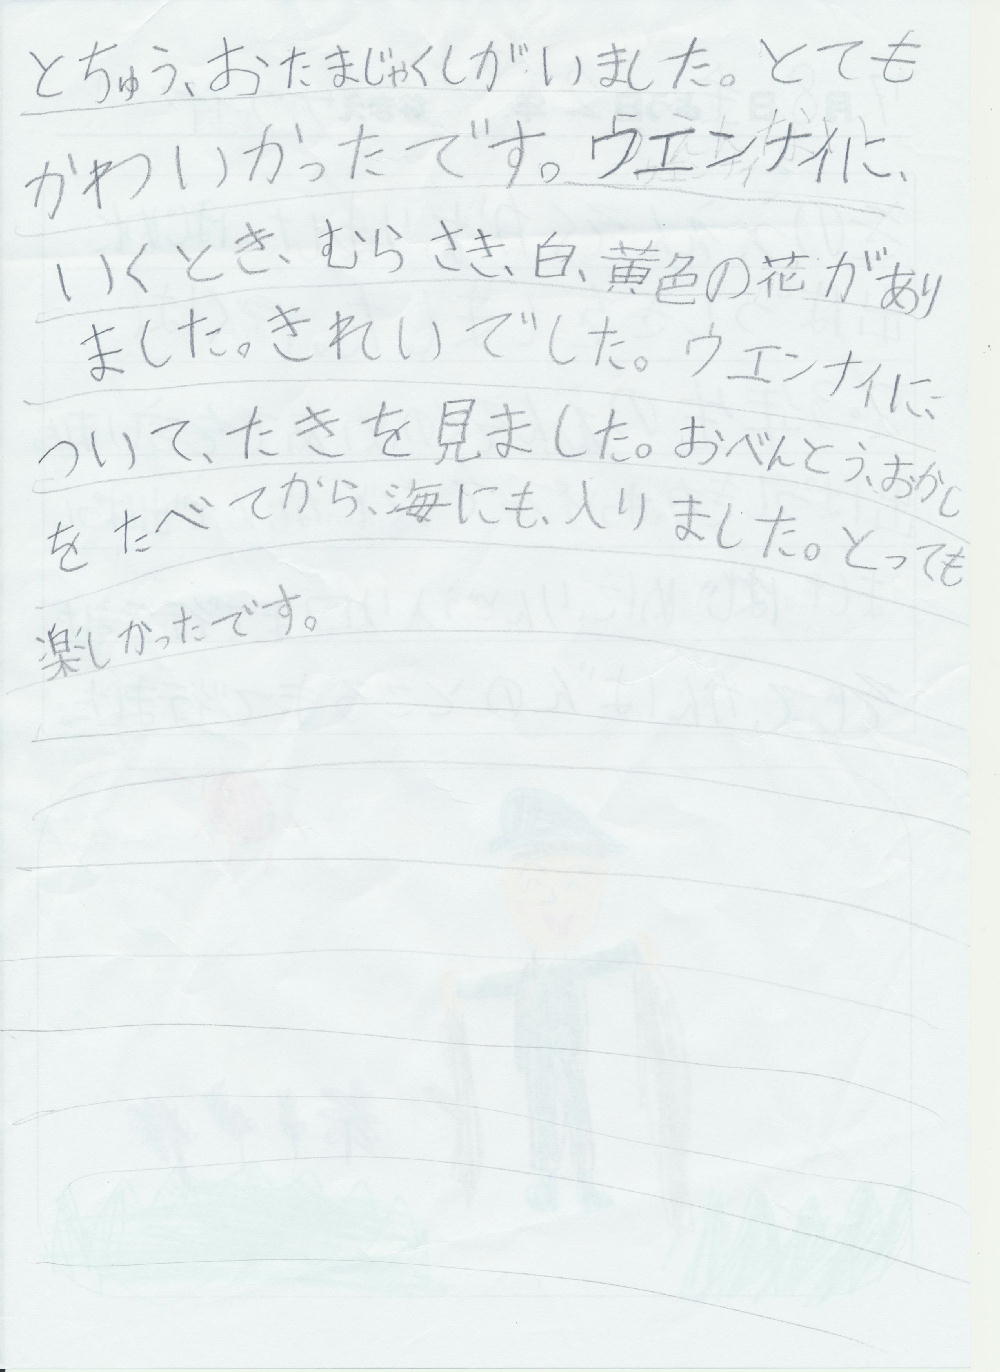 とちゅう、おたまじゃくしがいました。とても
かわいかったです。ウエンナイに、
いくとき、むらさき、白、黄色の花があり
ました。きれいでした。ウエンナイに、
ついて、たきを見ました。おべんとう、おかし
をたべてから、海にも、入りました。とっても
楽しかったです。